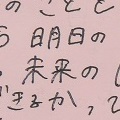 のことを
明日の
未来の
きるか、